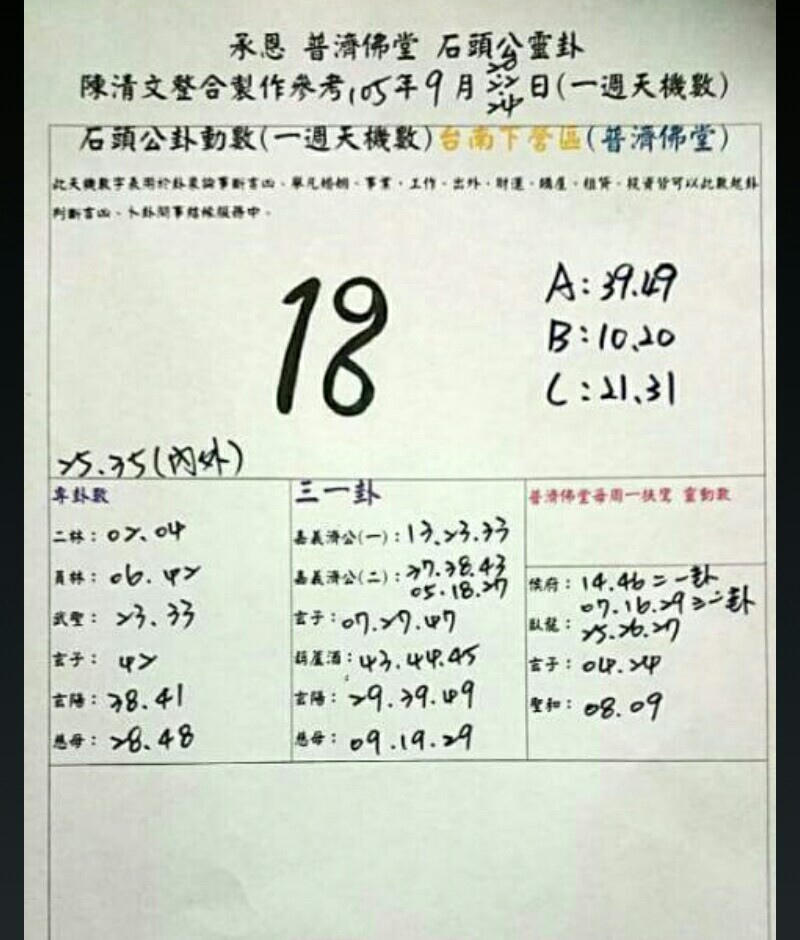 承恩 普濟佛堂 石頭公靈卦
陳清文整合製作參考105年9月20 22 24日(一週天機數)
石頭公卦動數(一週天機數)台南下營區(普濟佛堂)
此天機數字表用於卦象論事斷吉凶、舉凡婚姻、事業、工作、出外、財運、購屋、租賃、投資皆可以此數起卦
判斷吉凶、卦問事結緣服務中。
18
A:39.49
B:10.20
C:21.31
25.35(內外)
專卦數
二林:02.04
員林:06.42
武聖:23.33
玄子:42
玄陽:38.41
慈母:28.48
三一卦
嘉義濟公(一):13.23.33
嘉義濟公(二):37.38.43
05.18.27
玄子:07.27.47
葫蘆酒:43.44.45
玄陽:29.39.49
慈母:09.19.29
普濟佛堂每周一扶鸞 靈動數
侯府:14.46=一卦
07.16.29=二卦
臥龍:25.26.27
玄子:04.24
聖和:08.09